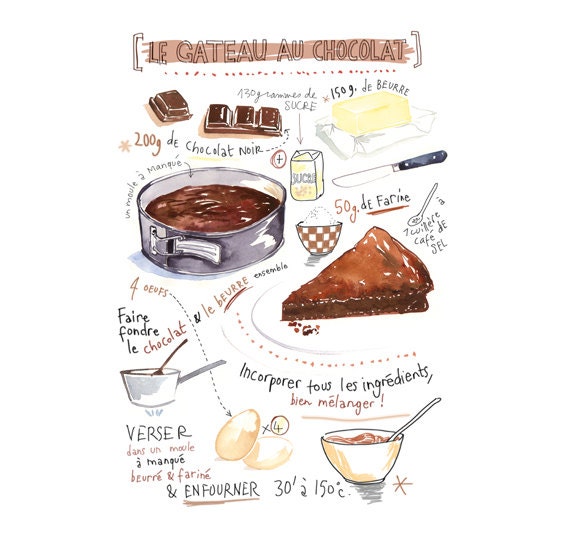 [LE GATEAU AU CHOCOLAT]
130 grammes de
SUCRE
*150g. de BEURRE
*200g de Chocolat NOIR
un moule à manqué
+
SUCRE
50g. de Farine
1 cuillère à
café DE
SEL
4 OEUFS
Faire
fondre
le chocolat & le BEURRE ensemble
Incorporer tous les ingrédients,
bien mélanger !
x4
VERSER
dans un moule
à manqué
beurré & fariné
& ENFOURNER 30' à 150°c.
*